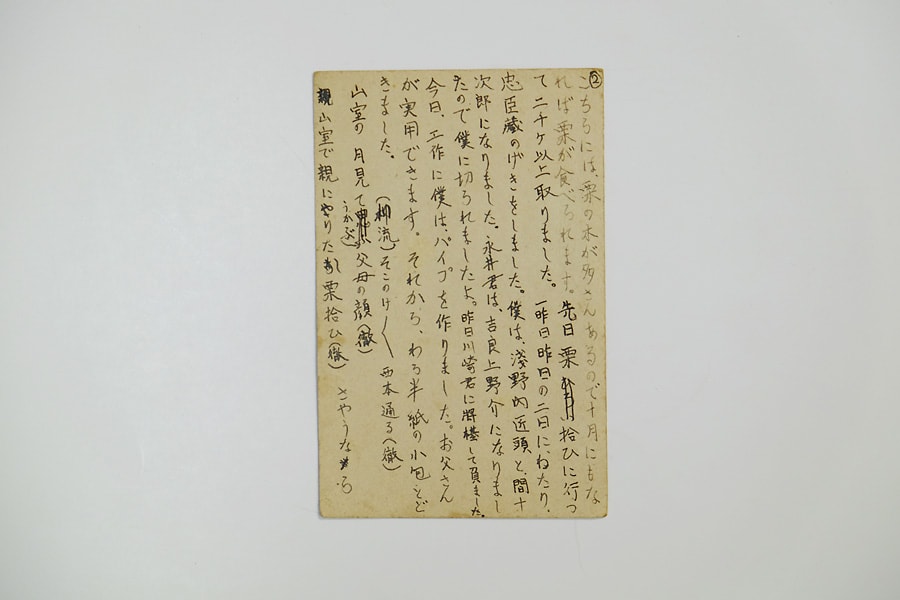 ②
こちらには、栗の木が多さんあるので十月にもな
れば栗が食べられます。先日栗拾ひに行つ
て二千ケ以上取りました。一昨日昨日の二日にわたり、
忠臣蔵のげきをしました。僕は、浅野内匠頭と、間十
次郎になりました。永井君は、吉良上野介になりまし
たので僕に切られましたよ。昨日川崎君に将棋して負ました。
今日、工作に僕は、パイプを作りました。お父さん
が実用できます。それから、わら半紙の小包とど
きました。
(川流)そこのけ〳〵西本通る(徹)
山室の月見てうかぶ父母の顔(徹)
山室で親にやりたし栗拾ひ(徹)
さやうなら